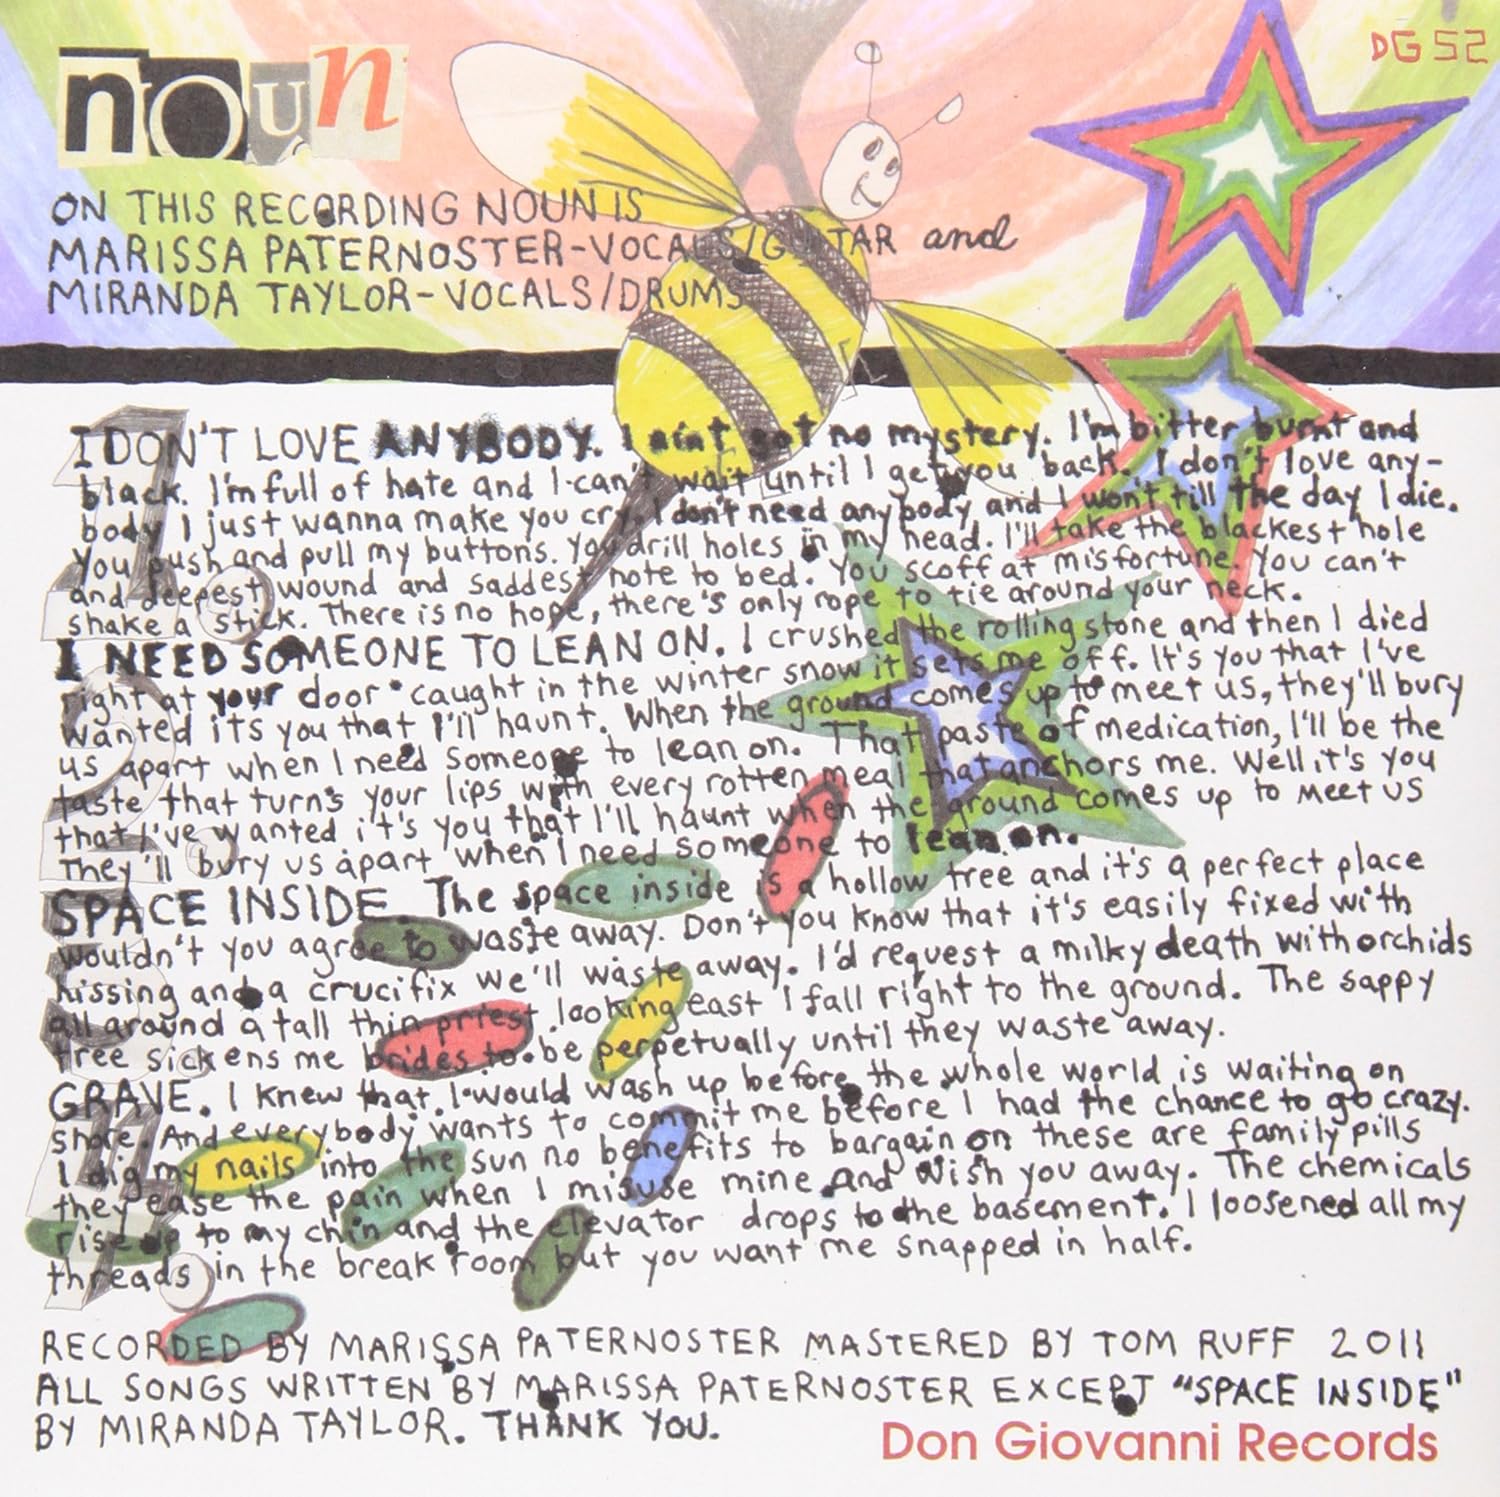 noun
DG 52
ON THIS RECORDING NOUN IS
MARISSA PATERNOSTER-VOCALS/GUITAR and
MIRANDA TAYLOR-VOCALS/DRUMS
1. I DON'T LOVE ANYBODY. I aint got no mystery. I'm bitter burnt and
black. I'm full of hate and I can't wait until I get you back. I don't love any-
body I just wanna make you cry. I don't need anybody and I won't till the day I die.
You push and pull my buttons. You drill holes in my head. I'll take the blackest hole
and deepest wound and saddest note to bed. You scoff at misfortune. You can't
shake a stick. There is no hope, there's only rope to tie around your neck.
2. I NEED SOMEONE TO LEAN ON. I crushed the rolling stone and then I died
right at your door caught in the winter snow it sets me off. It's you that I've
wanted its you that I'll haunt. When the ground comes up to meet us, they'll bury
us apart when I need someone to lean on. That paste of medication, I'll be the
taste that turns your lips with every rotten meal that anchors me. Well it's you
that I've wanted it's you that I'll haunt when the ground comes up to meet us
They'll bury us apart when I need someone to lean on.
3. SPACE INSIDE. The space inside is a hollow tree and it's a perfect place
wouldn't you agree to waste away. Don't you know that it's easily fixed with
kissing and a crucifix we'll waste away. I'd request a milky death with orchids
all around a tall thin priest looking east I fall right to the ground. The sappy
tree sickens me brides to be perpetually until they waste away.
4. GRAVE. I knew that I would wash up before the whole world is waiting on
shore. And everybody wants to commit me before I had the chance to go crazy.
I dig my nails into the sun no benefits to bargain on these are family pills
they ease the pain when I misuse mine And wish you away. The chemicals
rise up to my chin and the elevator drops to the basement. I loosened all my
threads in the break room but you want me snapped in half.
RECORDED BY MARISSA PATERNOSTER MASTERED BY TOM RUFF 2011
ALL SONGS WRITTEN BY MARISSA PATERNOSTER EXCEPT "SPACE INSIDE"
BY MIRANDA TAYLOR. THANK YOU.
Don Giovanni Records